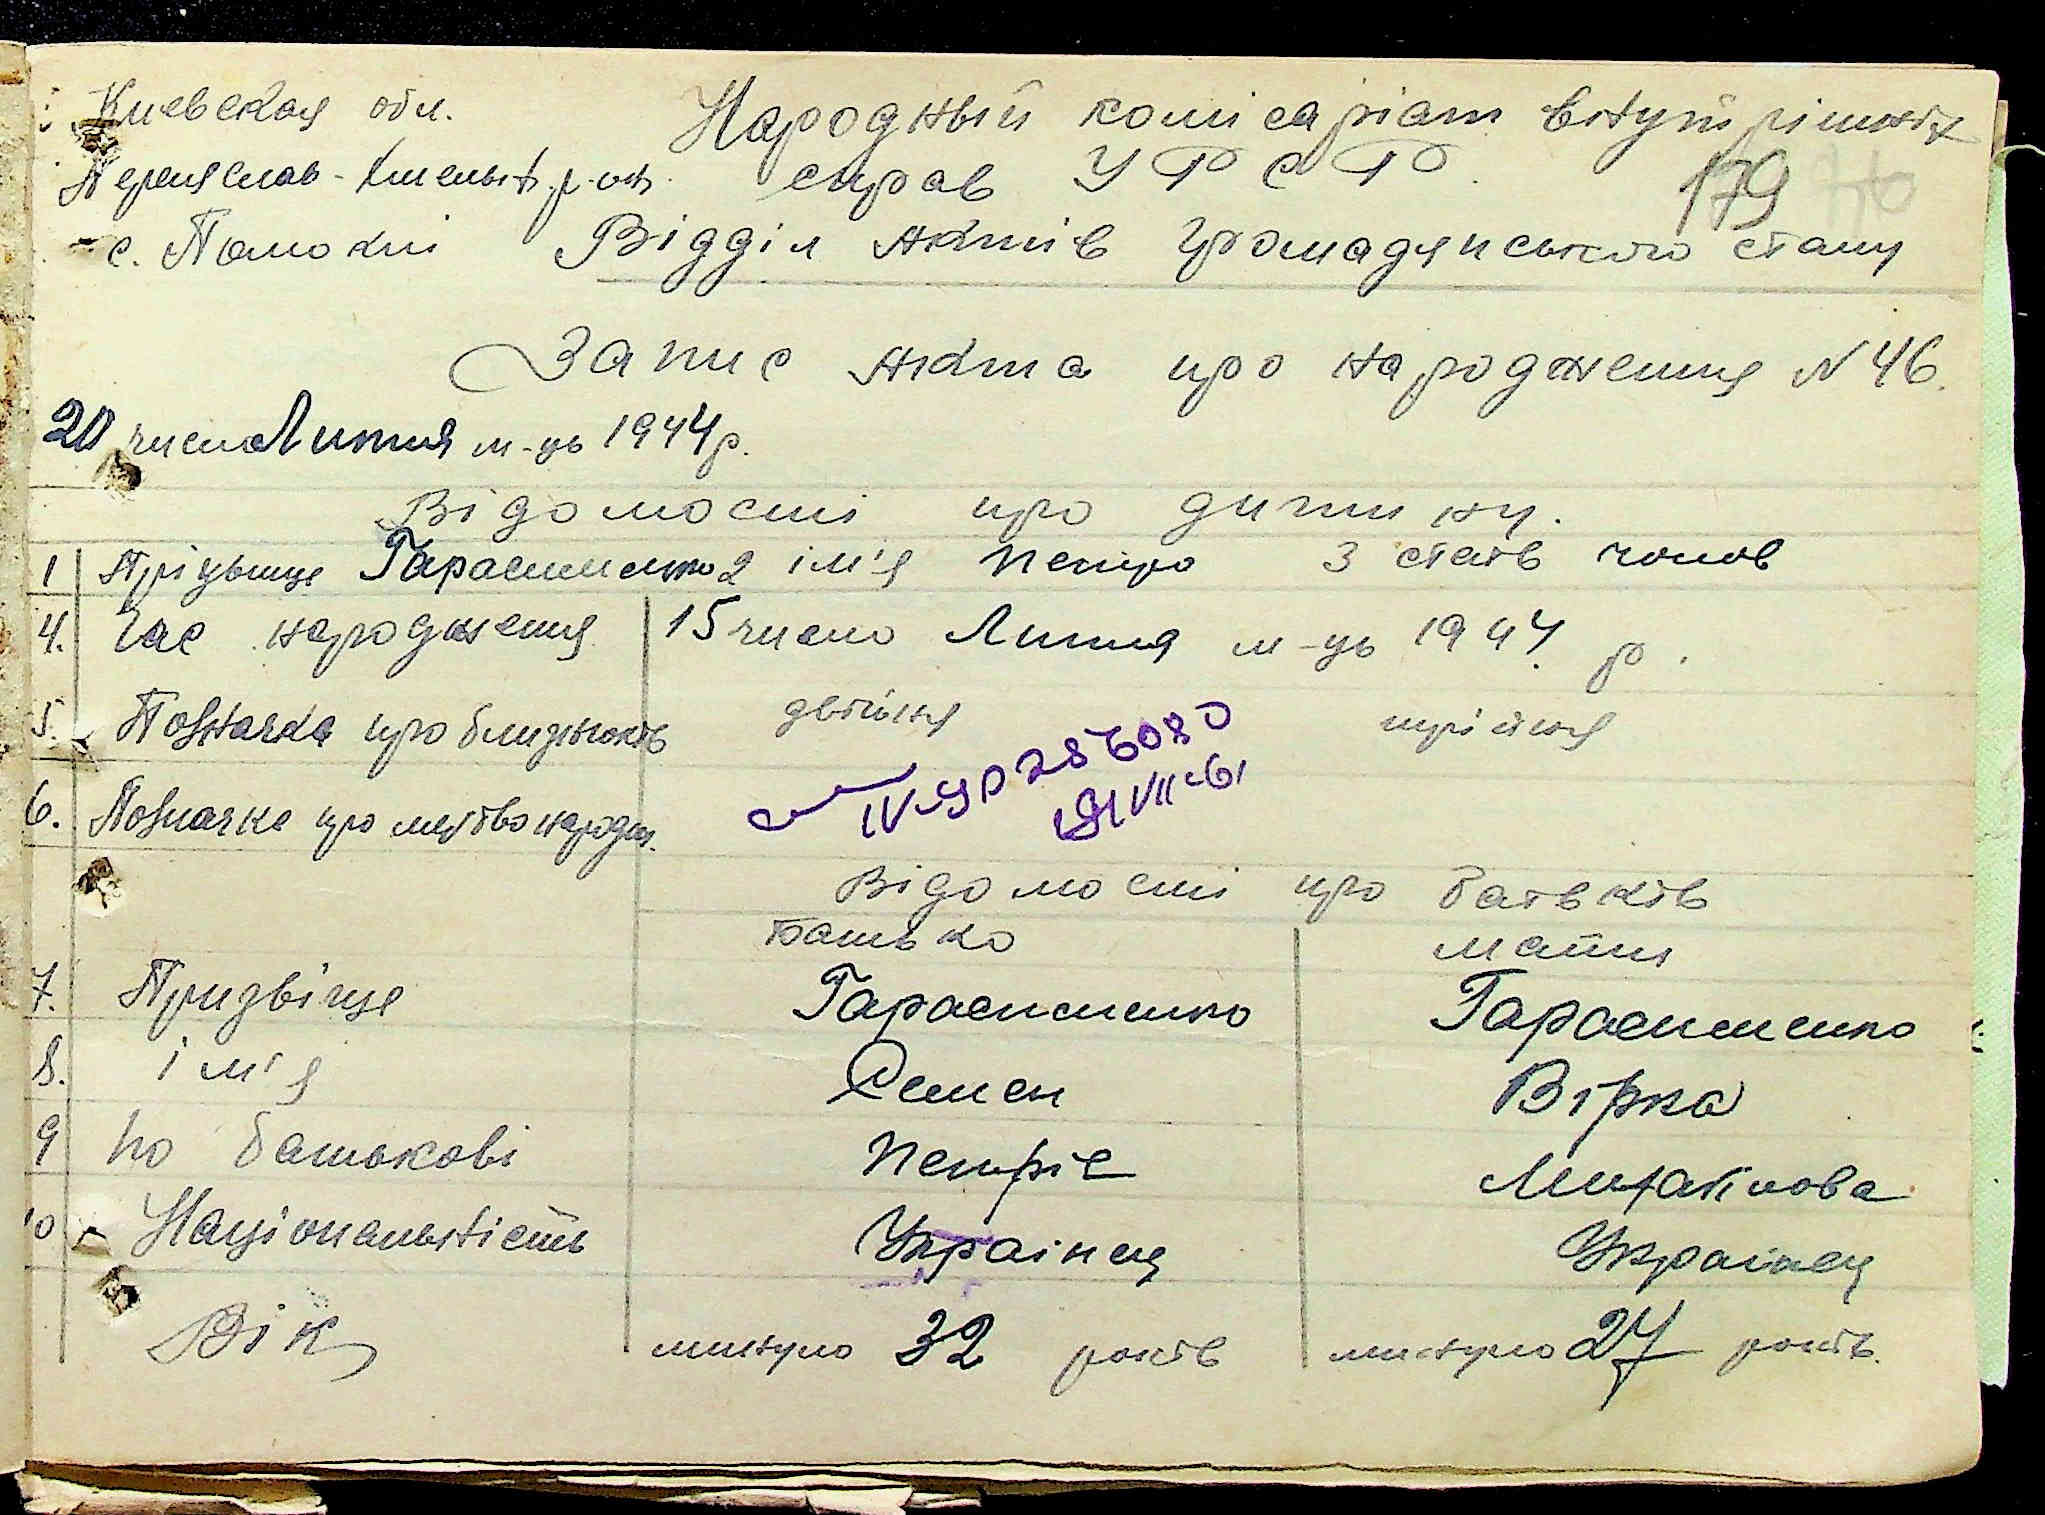 Киевская обл. Народный комісаріат внутрішніх
Переяслав-Хмельн. р-он. справ УРСР.
179
с. Помоклі Відділ Актів Громадянського стану
Запис Акта про народження N 46.
20 число Липня м-ць 1944 р.
Відомості про дитину.
1 Прізвище Гарасименко 2 ім'я Петро 3 стать чолов
4. Час народження 15 число Липня м-ць 1944 р.
5. Позначка про близнюків двійня трійня
6. Позначке про мертвонародж.
IV-УР 286080
VII-61
Відомості про батьків
Батько мати
7. Призвіще Гарасименко Гарасименко
8. ім'я Семен Вірка
9 по батькові Петрів Михайлова
10 Національність Українец Українец
Вік минуло 32 років минуло 27 років.